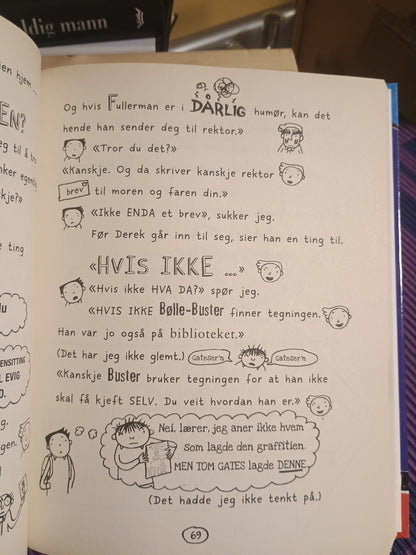 ldig mann
ien hjem ...
EN?
eg til å
nker egentlig
kje?»
ng ting
du
ENSITTING
L EVIG
D.
g.
ngen.
Og hvis Fullerman er i DÅRLIG humør, kan det
hende han sender deg til rektor.»
«Tror du det?»
«Kanskje. Og da skriver kanskje rektor
brev til moren og faren din.»
«Ikke ENDA et brev», sukker jeg.
Før Derek går inn til seg, sier han en ting til.
«HVIS IKKE ...»
«Hvis ikke HVA DA?» spør jeg.
«HVIS IKKE Bølle-Buster finner tegningen.
Han var jo også på biblioteket.»
(Det har jeg ikke glemt.) Gateser'n Gateser'n
«Kanskje Buster bruker tegningen for at han ikke
skal få kjeft SELV. Du veit hvordan han er.»
Nei, lærer, jeg aner ikke hvem
som lagde den graffitien.
MEN TOM GATES lagde DENNE.
(Det hadde jeg ikke tenkt på.)
69